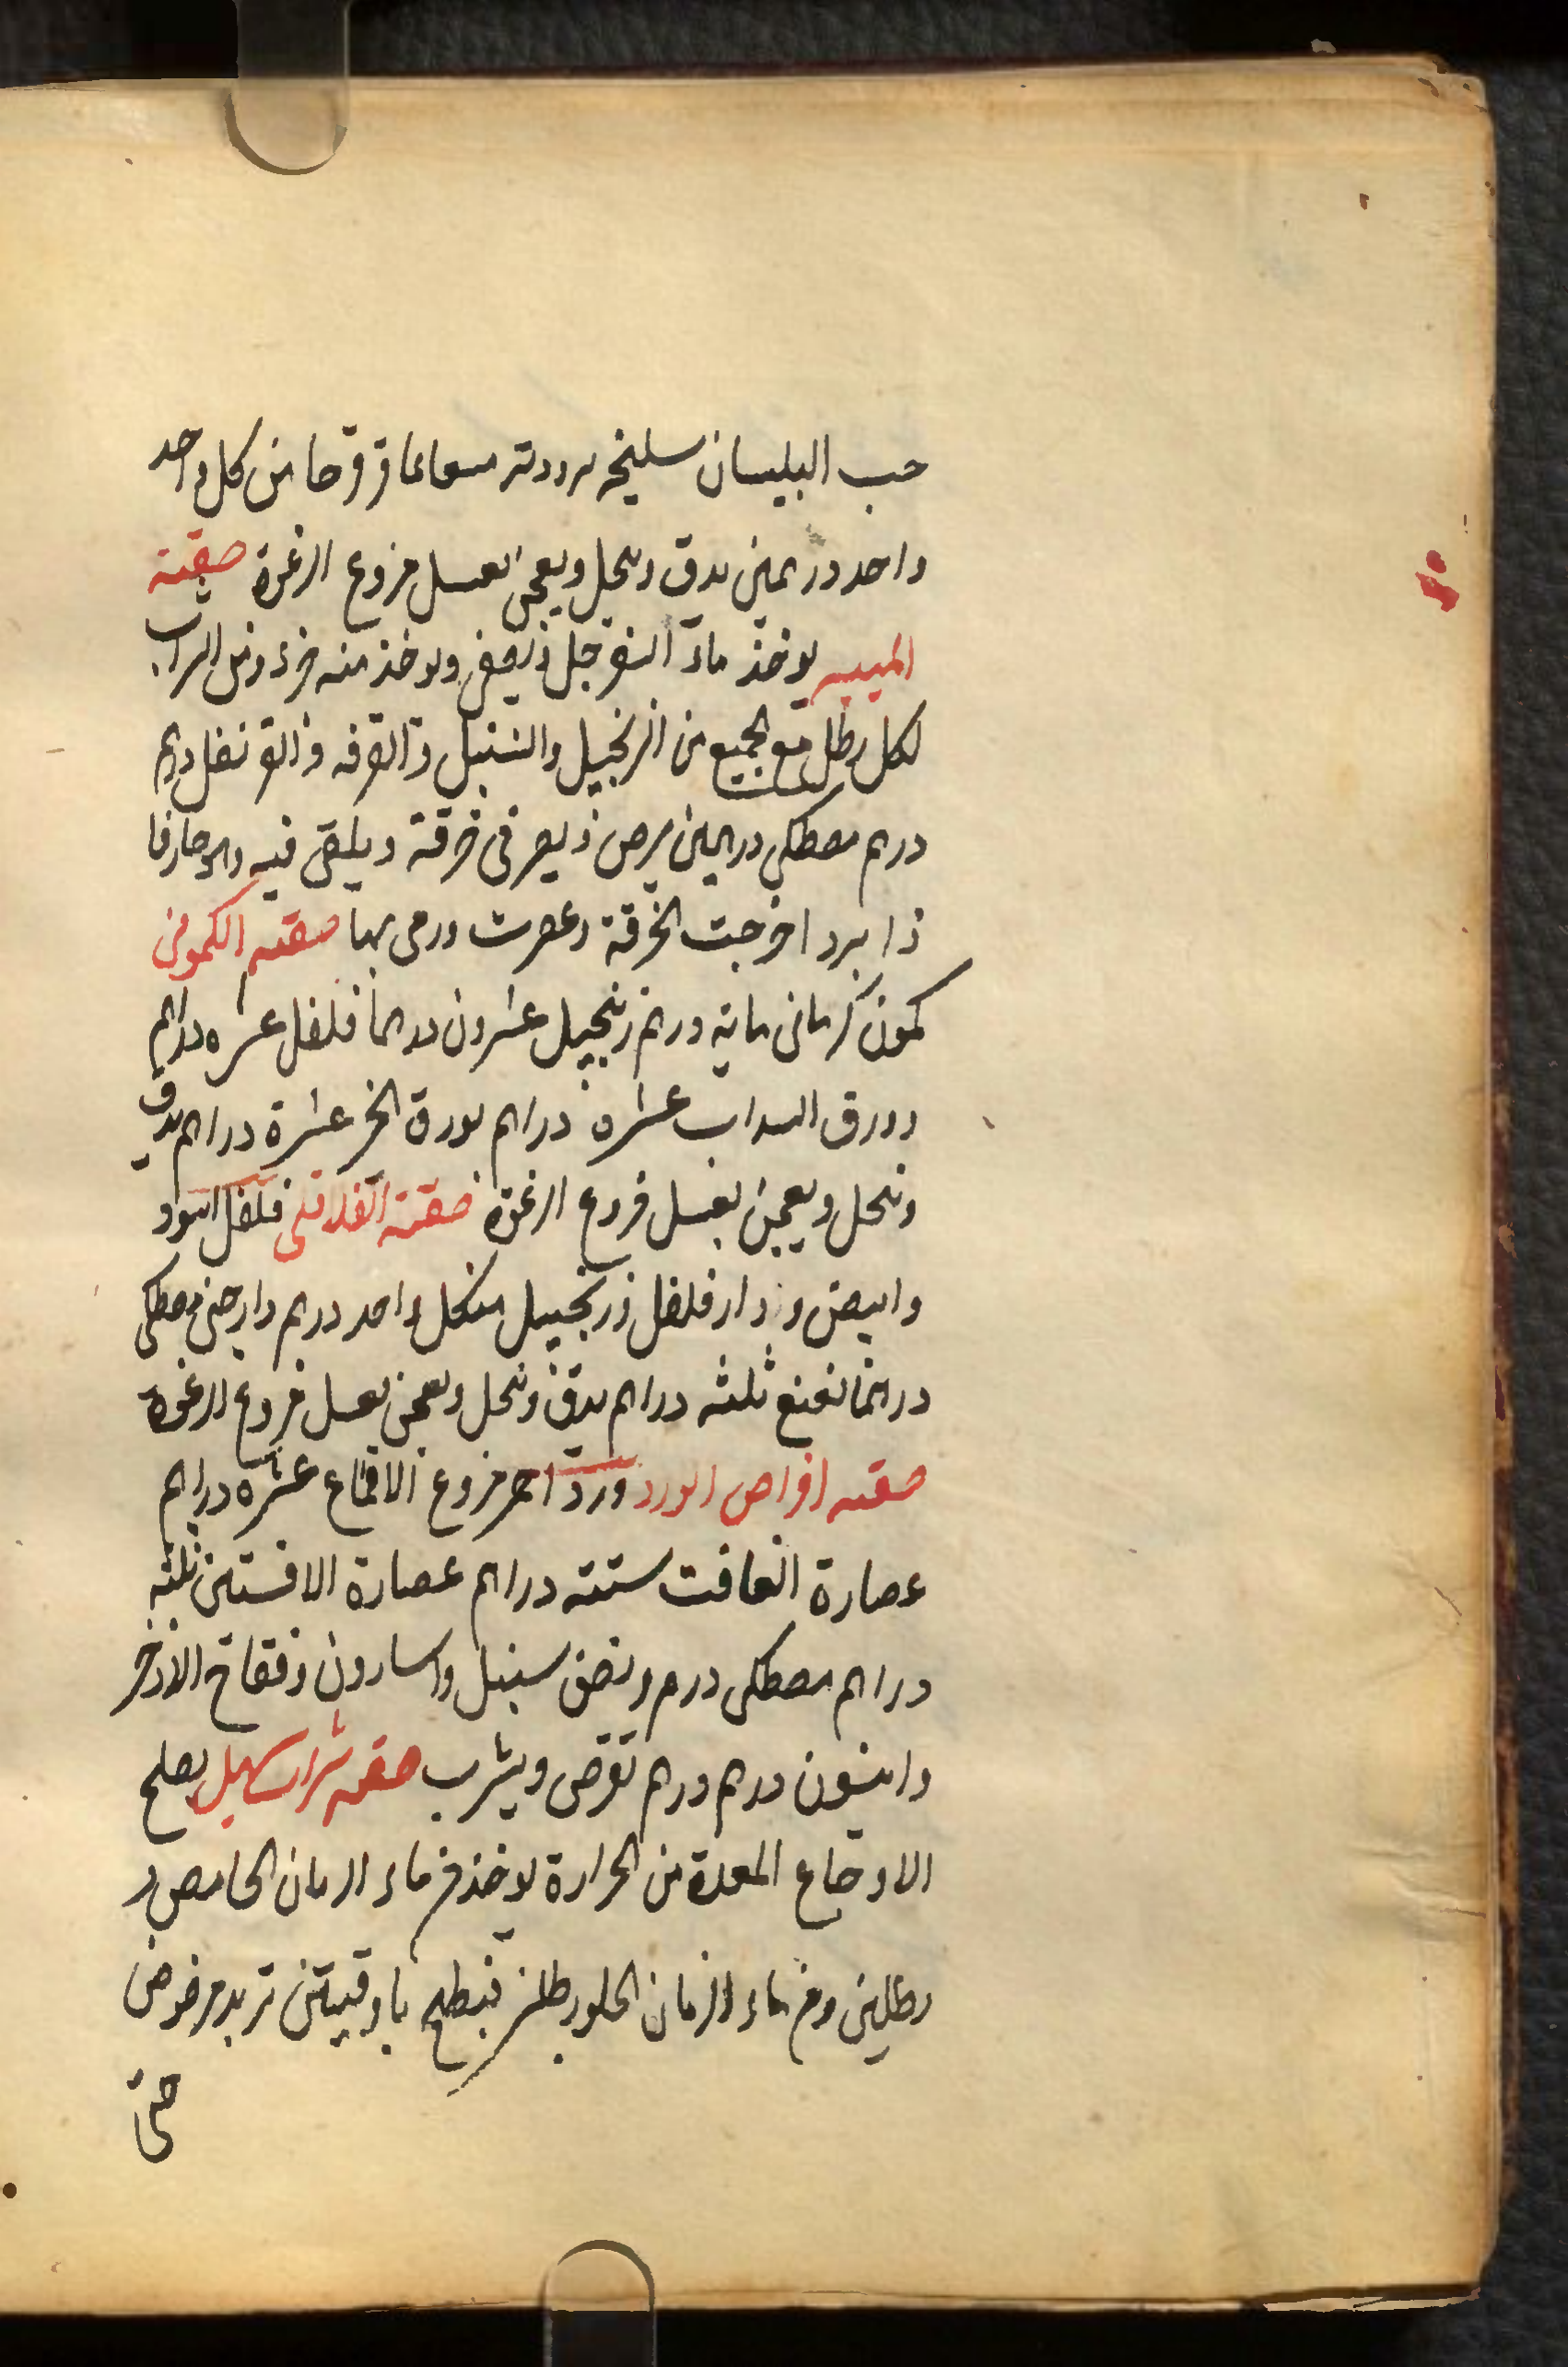 حب البليسان سليخه عاقرقرحا من كل واحد
واحد درهمين يدق وينخل ويعجن بعسل منزوع الرغوة صفته
الميبه يوخذ ماء السفرجل ويصفى ويوخذ منه جزء ومن الشراب
لكل رطل مع الجميع من الزنجبيل والسنبل والقرفه والقرنفل درهم
درهم مصطكى درهمين يرض ويصر فى خرقة ويلقى فيه وهو حار فا
ذا برد اخرجت الخرقة وعصرت ورمى بها صفته الكمونى
كمون كرمانى مايه درهم زنجبيل عشرون درهما فلفل عشره دراهم
وورق السداب عشره دراهم بورق الخبز عشرة دراهم يدق
وينخل ويعجن بعسل منزوع الرغوة صفته الفلافلى فلفل اسود
وابيض ودار فلفل وزنجبيل من كل واحد درهم دارصينى مصطكى
درهما نعنع ثلثه دراهم يدق وينخل ويعجن بعسل منزوع الرغوة
صفته اقراص الورد ورد احمر منزوع الاقماع عشره دراهم
عصارة الغافت ستته دراهم عصارة الافسنتين ثلثه
دراهم مصطكى درهم ونصف سنبل واسارون وفقاح الاذخر
وانيسون درهم درهم تقرص ويشرب صفته شراب سهيل يصلح
الاوجاع المعدة من الحرارة يوخذ من ماء الرمان الحامض
رطلين ومن ماء الرمان الحلو رطلين فيطبخ باوقيتين تربد مرضوض
حتى